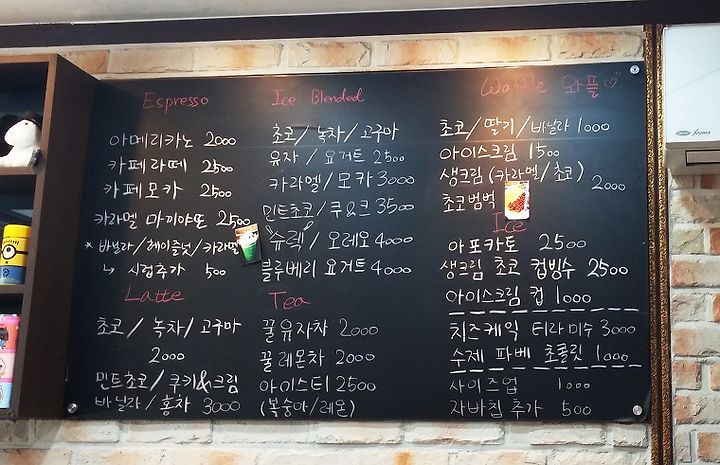 Espresso
아메리카노 2000
카페라떼 2500
카페모카 2500
카라멜 마끼야또 2500
* 바닐라/헤이즐넛/카라멜
↳ 시럽추가 500
Latte
초코/녹차/고구마
2000
민트초코/쿠키&크림
바닐라/홍차 3000
Ice Blended
초코/녹차/고구마
유자/요거트 2500
카라멜/모카 3000
민트초코/쿠&크 3500
슈렉/오레오 4000
블루베리 요거트 4000
Tea
꿀유자차 2000
꿀레몬차 2000
아이스티 2500
(복숭아/레몬)
Waffle 와플♡
초코/딸기/바닐라 1000
아이스크림 1500
생크림 (카라멜/초코)
초코범벅 2000
Ice
아포카토 2500
생크림 초코 컵빙수 2500
아이스크림 컵 1000
치즈케익 티라미수 3000
수제 파베 초콜릿 1000
사이즈업 1000
자바칩 추가 500